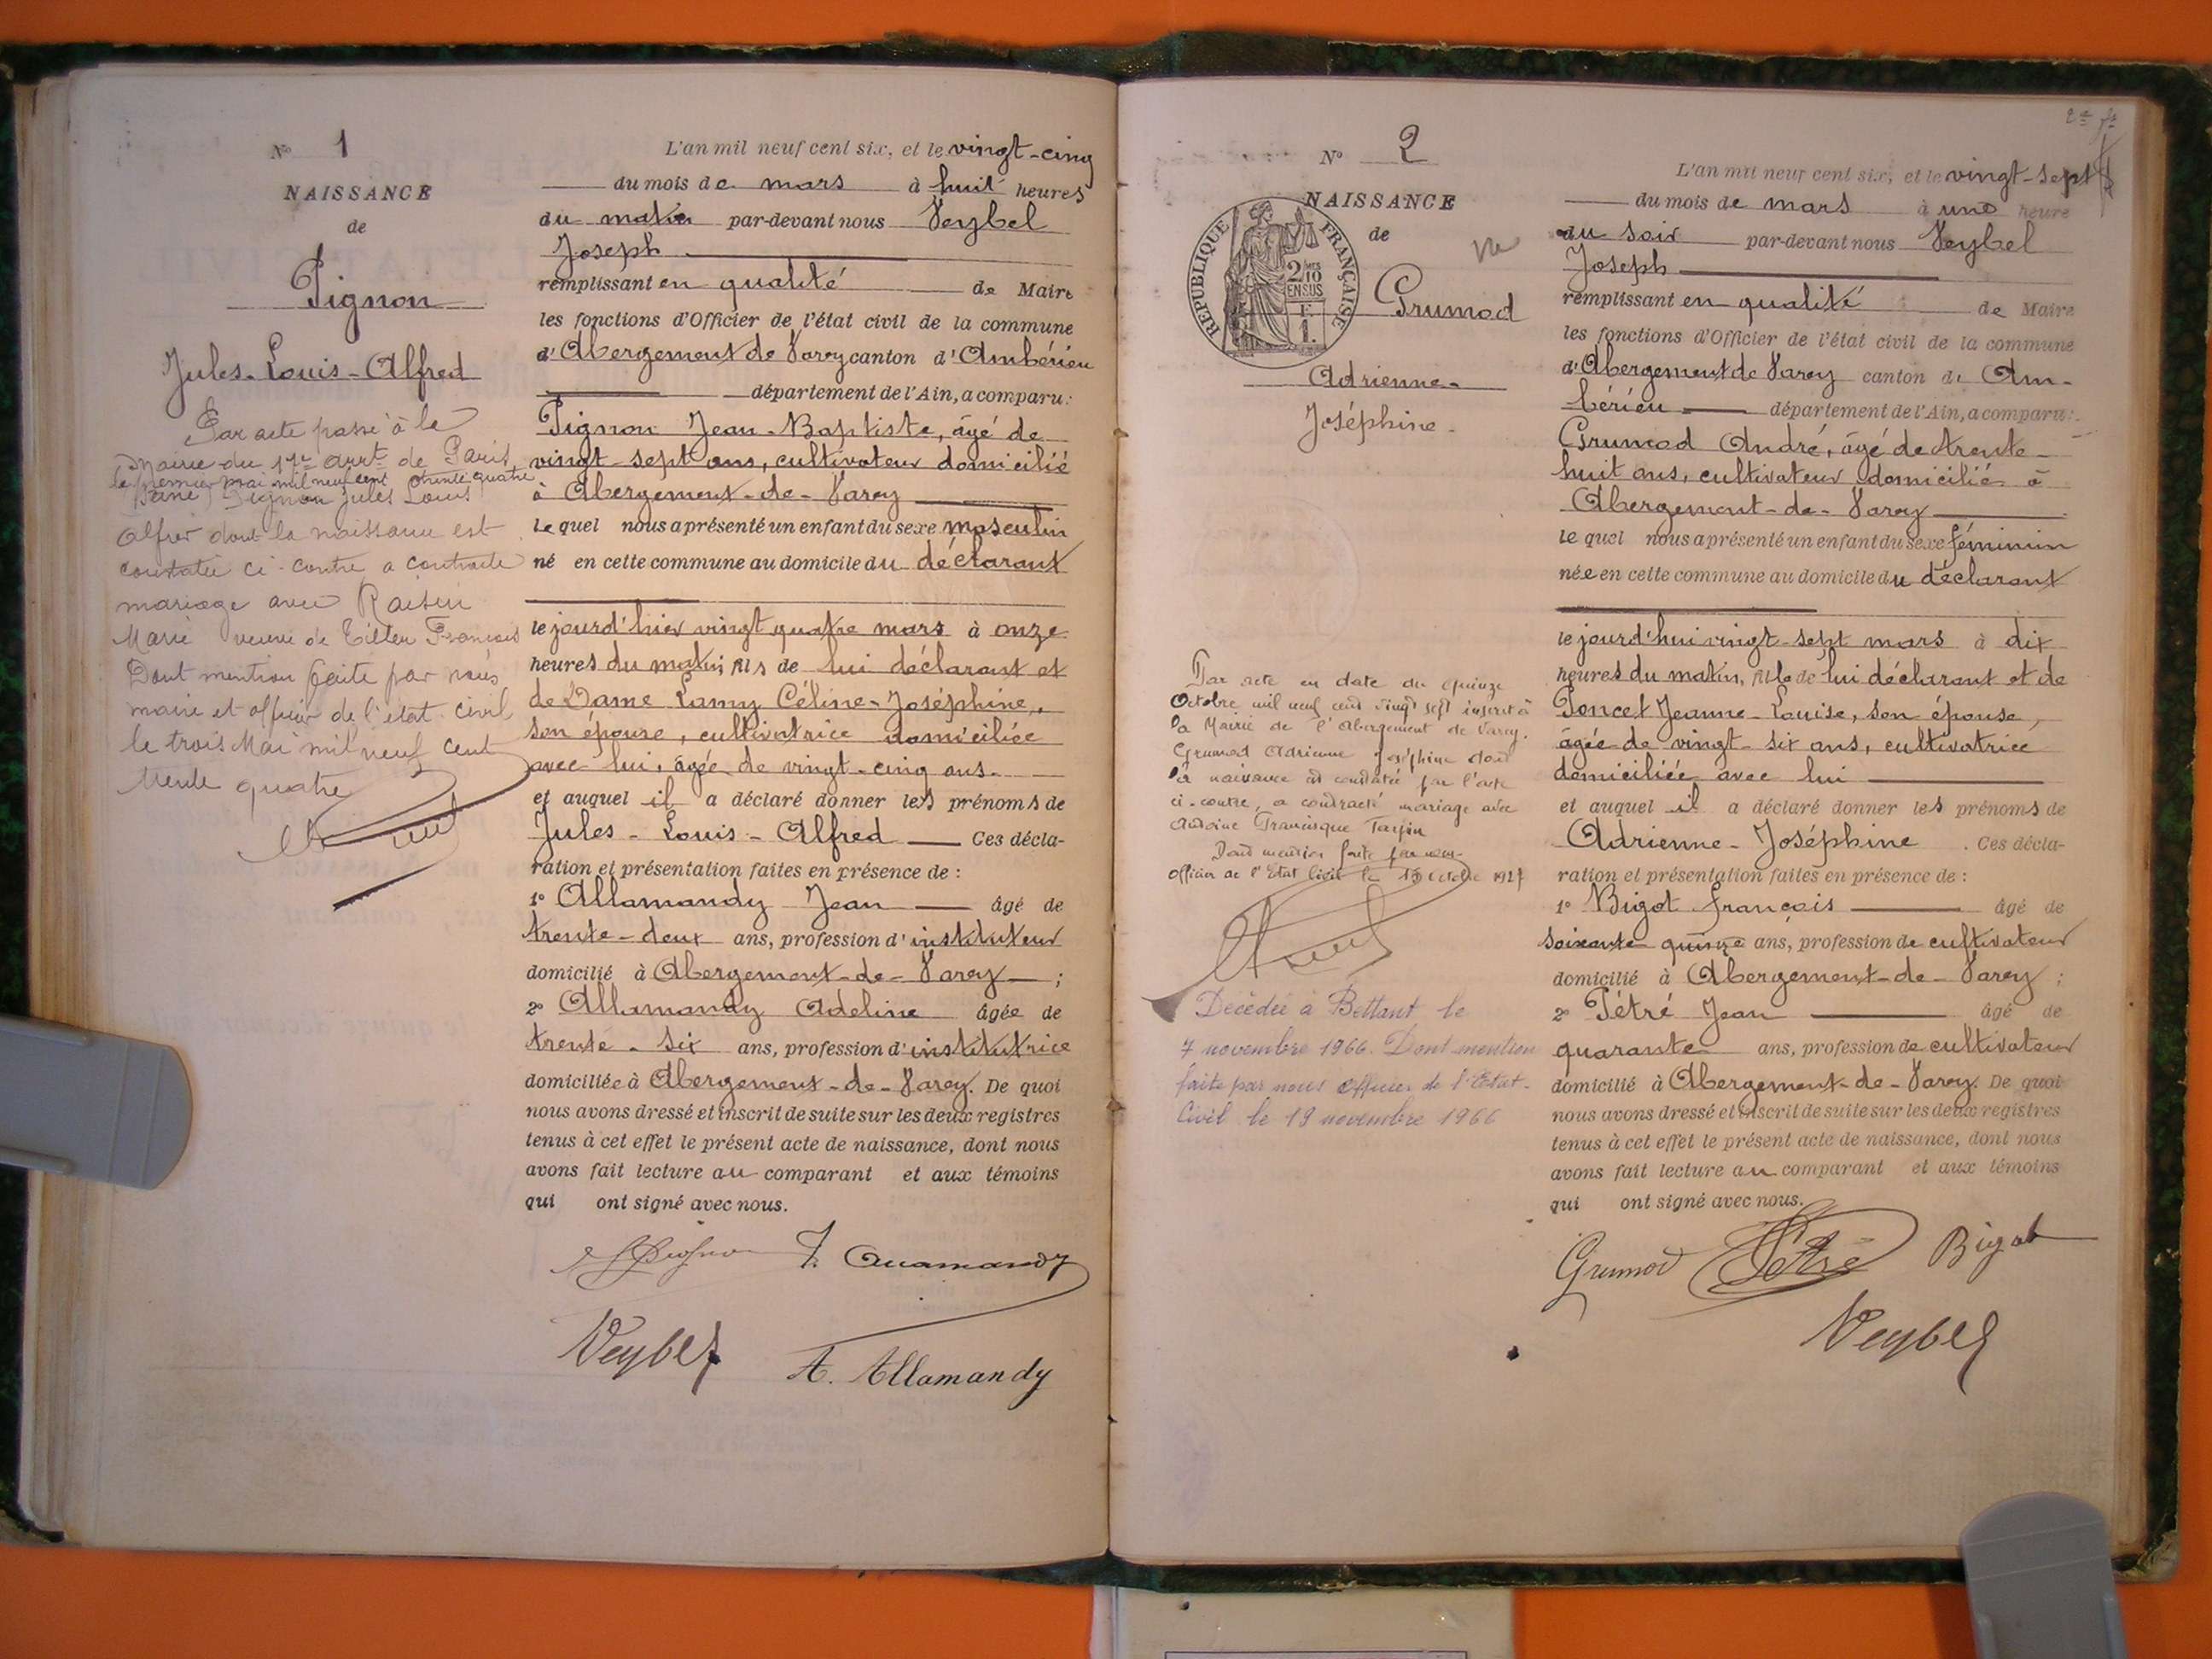 N° 1
NAISSANCE
de
Pignon
Jules-Louis-Alfred
Par acte passé à la
Mairie du 17e arrt de Paris
le premier mai mil neuf cent trente quatre
Pignon Jules Louis
Alfred dont la naissance est
constatée ci-contre a contracté
mariage avec Raisin
Marie veuve de François
Dont mention faite par nous
maire et officier de l'état civil
le trois Mai mil neuf cent
trente quatre
L'an mil neuf cent six, et le vingt-cinq
du mois de mars à huit heures
du matin par-devant nous Veybel
Joseph
remplissant en qualité de Maire
les fonctions d'Officier de l'état civil de la commune
d'Abergement de Varey canton d'Ambérieu
département de l'Ain, a comparu:
Pignon Jean-Baptiste, âgé de
vingt-sept ans, cultivateur domicilié
à Abergement-de-Varey
le quel nous a présenté un enfant du sexe masculin
né en cette commune au domicile du déclarant
le jourd'hier vingt quatre mars à onze
heures du matin, fils de lui déclarant et
de Dame Lanny Céline-Joséphine,
son épouse, cultivatrice domiciliée
avec lui, âgée de vingt-cinq ans.
et auquel il a déclaré donner les prénoms de
Jules-Louis-Alfred Ces décla-
ration et présentation faites en présence de :
1° Allamandy Jean âgé de
trente-deux ans, profession d'instituteur
domicilié à Abergement-de-Varey ;
2° Allamandy Adeline âgée de
trente-six ans, profession d'institutrice
domiciliée à Abergement-de-Varey. De quoi
nous avons dressé et inscrit de suite sur les deux registres
tenus à cet effet le présent acte de naissance, dont nous
avons fait lecture au comparant et aux témoins
qui ont signé avec nous.
Pignon J. Allamandy
Veybel A. Allamandy
2e ft
N° 2
NAISSANCE
de
RÉPUBLIQUE FRANÇAISE
2/10 EN SUS
Grumod
Adrienne-
Joséphine-
Par acte en date du quinze
Octobre mil neuf cent vingt sept inscrit à
la Mairie de l'Abergement de Varey.
Grumod Adrienne Joséphine dont
la naissance est constatée par l'acte
ci-contre, a contracté mariage avec
Antoine Francisque
Dont mention faite par nous
Officier de l'Etat Civil le 15 octobre 1927
Décédée à Bettant le
7 novembre 1966. Dont mention
faite par nous Officier de l'Etat-
Civil le 19 novembre 1966
L'an mil neuf cent six, et le vingt-sept
du mois de mars à une heure
du soir par-devant nous Veybel
Joseph
remplissant en qualité de Maire
les fonctions d'Officier de l'état civil de la commune
d'Abergement de Varey canton d'Am-
bérieu département de l'Ain, a comparu:
Grumod André, âgé de trente-
huit ans, cultivateur domicilié à
Abergement-de-Varey
le quel nous a présenté un enfant du sexe féminin
née en cette commune au domicile du déclarant
le jourd'hui vingt-sept mars à dix
heures du matin, fille de lui déclarant et de
Poncet Jeanne-Louise, son épouse,
âgée de vingt-six ans, cultivatrice
domiciliée avec lui
et auquel il a déclaré donner les prénoms de
Adrienne-Joséphine. Ces décla-
ration et présentation faites en présence de :
1° Bigot François âgé de
soixante quinze ans, profession de cultivateur
domicilié à Abergement-de-Varey ;
2° Pétré Jean âgé de
quarante ans, profession de cultivateur
domicilié à Abergement-de-Varey. De quoi
nous avons dressé et inscrit de suite sur les deux registres
tenus à cet effet le présent acte de naissance, dont nous
avons fait lecture au comparant et aux témoins
qui ont signé avec nous.
Grumod Pétré Bigot
Veybel